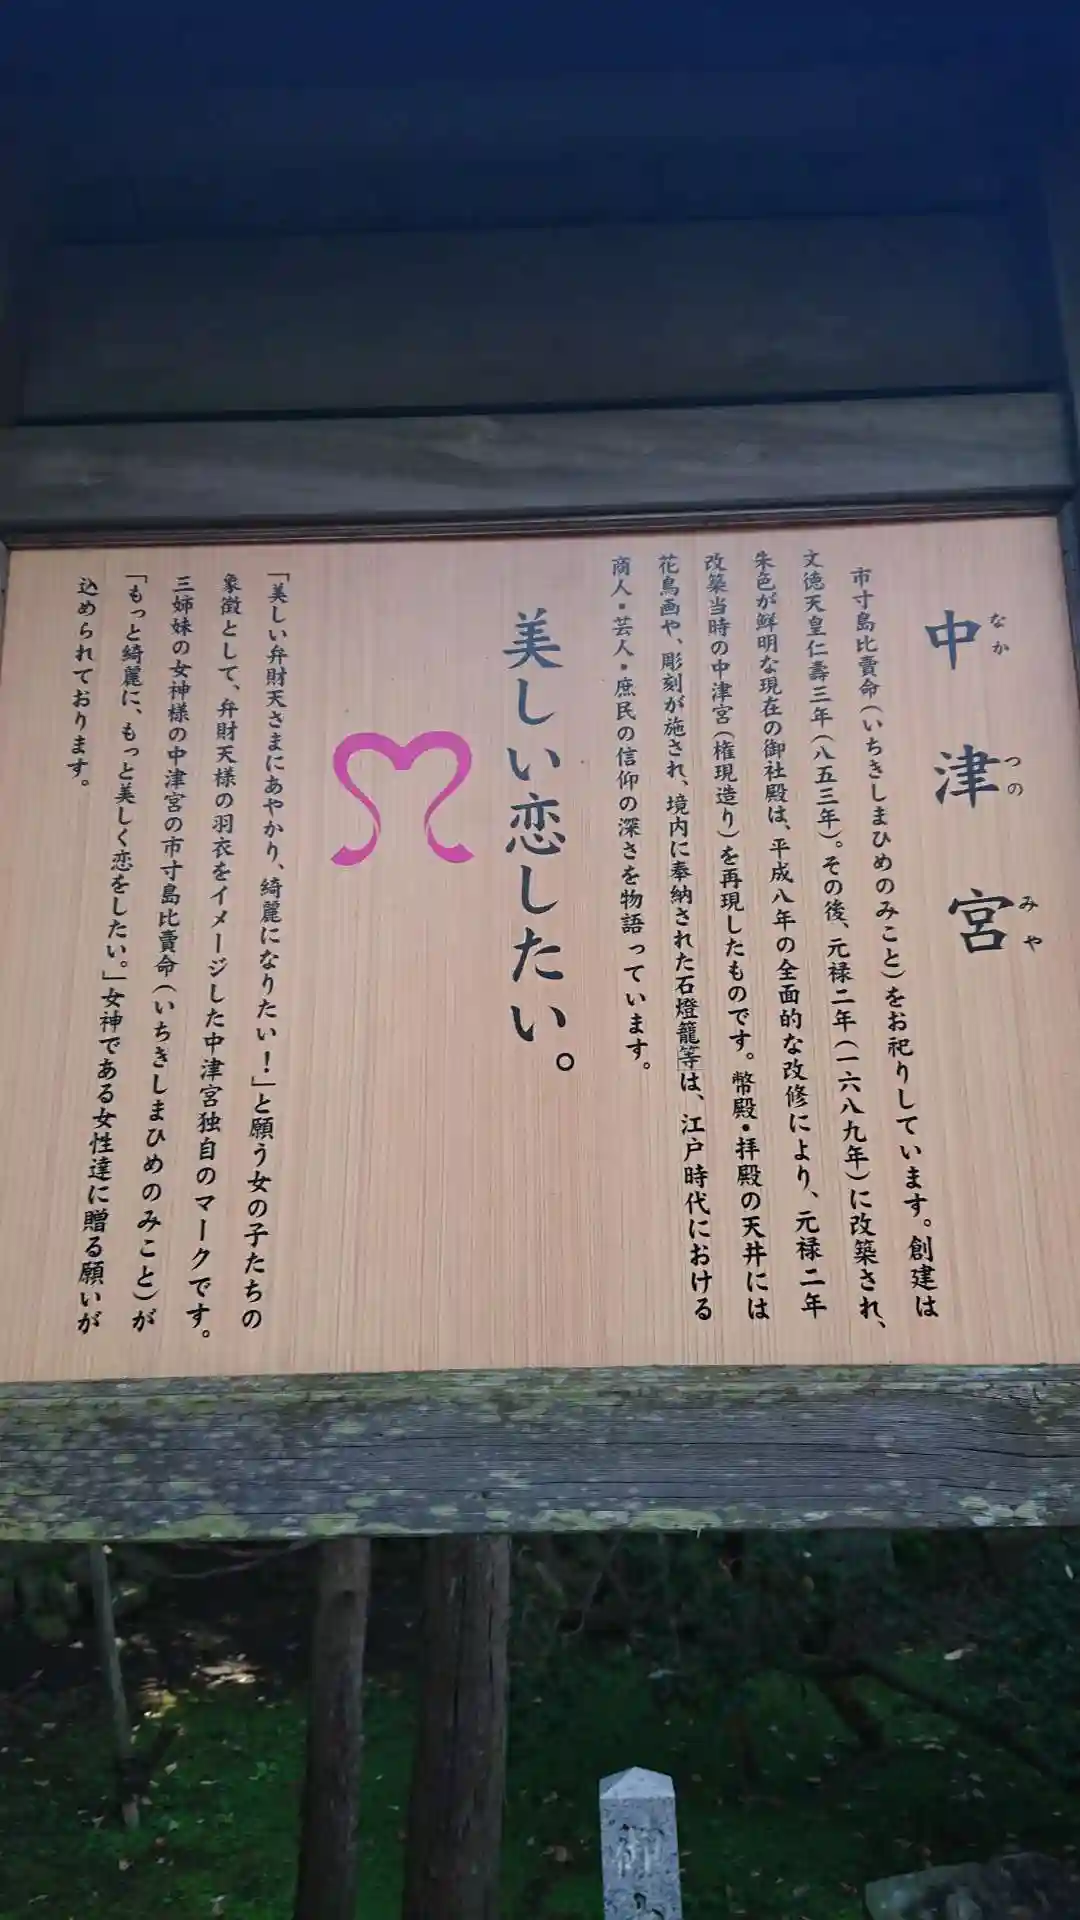 中津宮
なかつのみや
市寸島比賣命(いちきしまひめのみこと)をお祀りしています。創建は
文徳天皇仁壽三年(八五三年)。その後、元禄二年(一六八九年)に改築され、
朱色が鮮明な現在の御社殿は、平成八年の全面的な改修により、元禄二年
改築当時の中津宮(権現造り)を再現したものです。幣殿・拝殿の天井には
花鳥画や、彫刻が施され、境内に奉納された石燈籠等は、江戸時代における
商人・芸人・庶民の信仰の深さを物語っています。
美しい恋したい。
「美しい弁財天さまにあやかり、綺麗になりたい!」と願う女の子たちの
象徴として、弁財天様の羽衣をイメージした中津宮独自のマークです。
三姉妹の女神様の中津宮の市寸島比賣命(いちきしまひめのみこと)が
「もっと綺麗に、もっと美しく恋をしたい。」女神である女性達に贈る願いが
込められております。
御